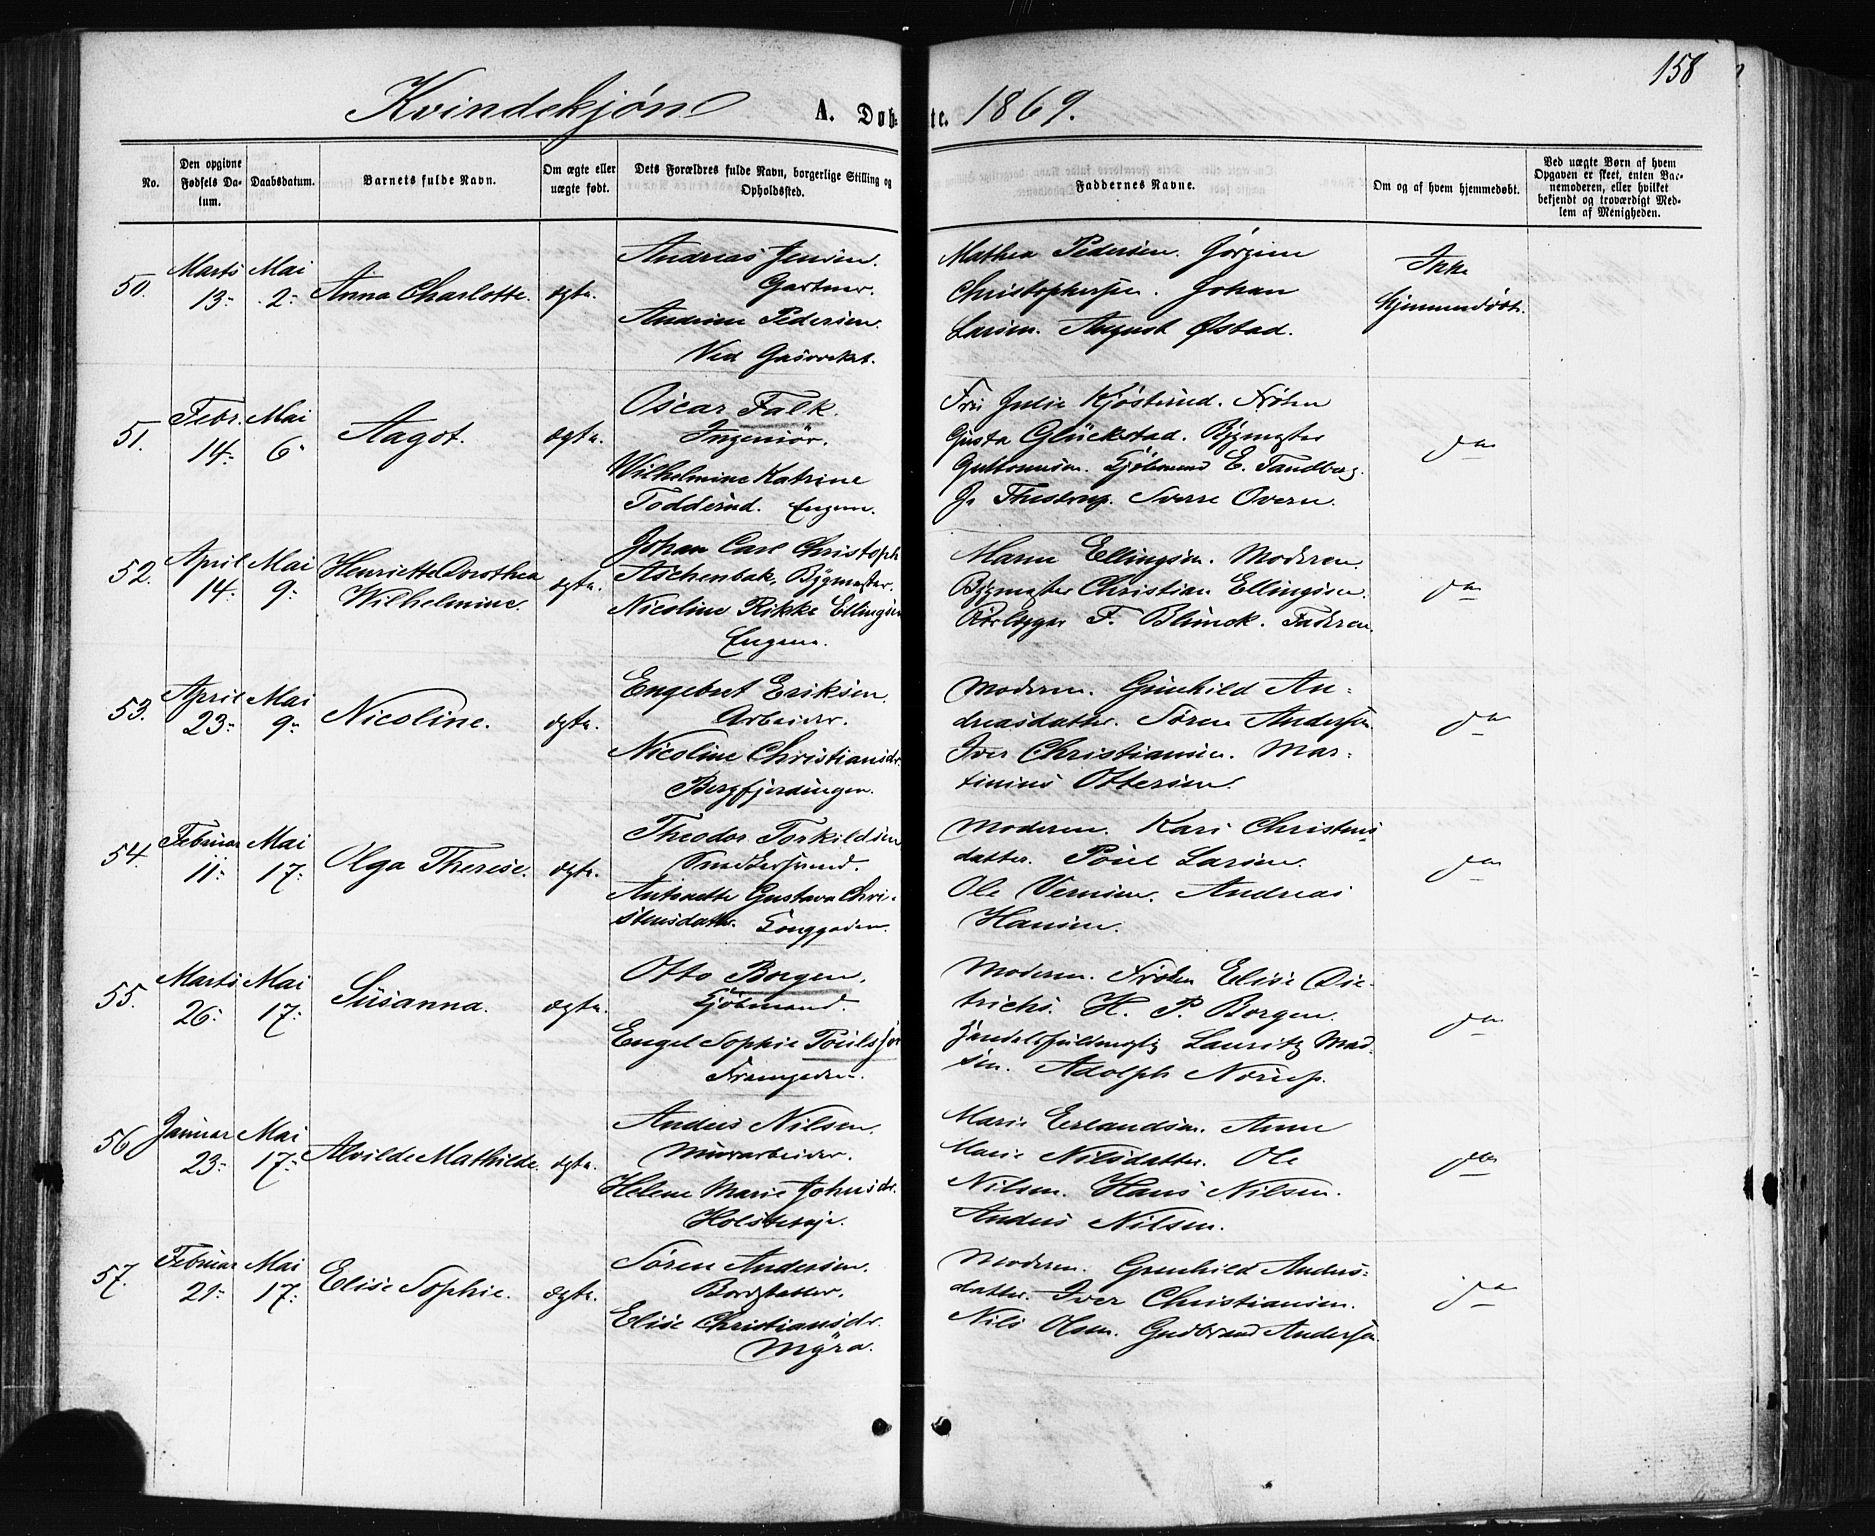 158
Kvindekjøn A. Døbte. 1869.
No.
Den opgivne Fødsels Datum.
Daabsdatum.
Barnets fulde Navn.
Om ægte eller uægte født.
Dets Forældres fulde Navn, borgerlige Stilling og Opholdssted.
Faddernes Navne.
Om og af hvem hjemmedøbt.
Ved uægte Børn af hvem Opgaven er skeet, enten Barnemoderen, eller hvilket bekjendt og troværdigt Medlem af Menigheden.
50. Marts 13. Mai 2. Anna Charlotte. ægte.
Andreas Jensen.
Gartner.
Andrine Pedersen.
Ved Gasverket.
Mathea Pedersen. Jørgine
Christophersen. Johan
Larsen. August Østad.
Ikke
hjemmedøbt.
51. Febr. 14. Mai 6. Aagot. ægte.
Oscar Falk.
Ingeniør.
Wilhelmine Katrine
Todderud. Engene.
Julie Kjøsterud. Frøken
Gusta Glückstad. Bygmester
Guttormsen. Kjøbmand E. Tandberg.
Sverre Overn.
do
52. April 14. Mai 9. Henriette Dorothea
Wilhelmine. ægte.
Johan Carl Christoph
Aschenbak, Bygmester.
Nicoline Rikke Ellingsen
Engene.
Maren Ellingsen. Moderen.
Bygmester Christian Ellingsen.
F. Blünck. Faderen.
do
53. April 23. Mai 9. Nicoline. ægte.
Engebret Eriksen.
Arbeider.
Nicoline Christiansdr.
Bergfjerdingen.
Moderen. Gunhild An-
dreasdatter. Søren Andersen
Iver Christiansen. Mar-
tinius Ottersen.
do
54. Februar 11. Mai 17. Olga Therese. ægte.
Theodor Torkildsen
Smedsvend.
Antonette Gustava Chri-
stensdatter. Tonggaden.
Moderen. Kari Christens-
datter. Poul Larsen.
Ole Andreas
Hansen.
do
55. Marts 26. Mai 17. Susanna. ægte.
Otto Borgen.
Kjøbmand.
Engel Sophie Poulsson
Framgaden.
Moderen. Frøken Elise Die-
trichs. H. P. Borgen.
Handelsfuldmegtig Lauritz Mad-
sen. Adolph Norup.
do
56. Januar 23. Mai 17. Alvilde Mathilde. ægte.
Anders Nilsen.
Murarbeider.
Helene Marie Johnsdr.
Marie Erlandsen. Anne
Marie Nilsdatter. Ole
Nilsen. Hans Nilsen.
Anders Nilsen.
do
57. Februar 21. Mai 17. Elise Sophie. ægte.
Søren Andersen.
Elise Christiansdr.
Myra.
Moderen. Gunhild Anders-
datter. Iver Christiansen.
Nils Olsen. Gudbrand Andersen
do